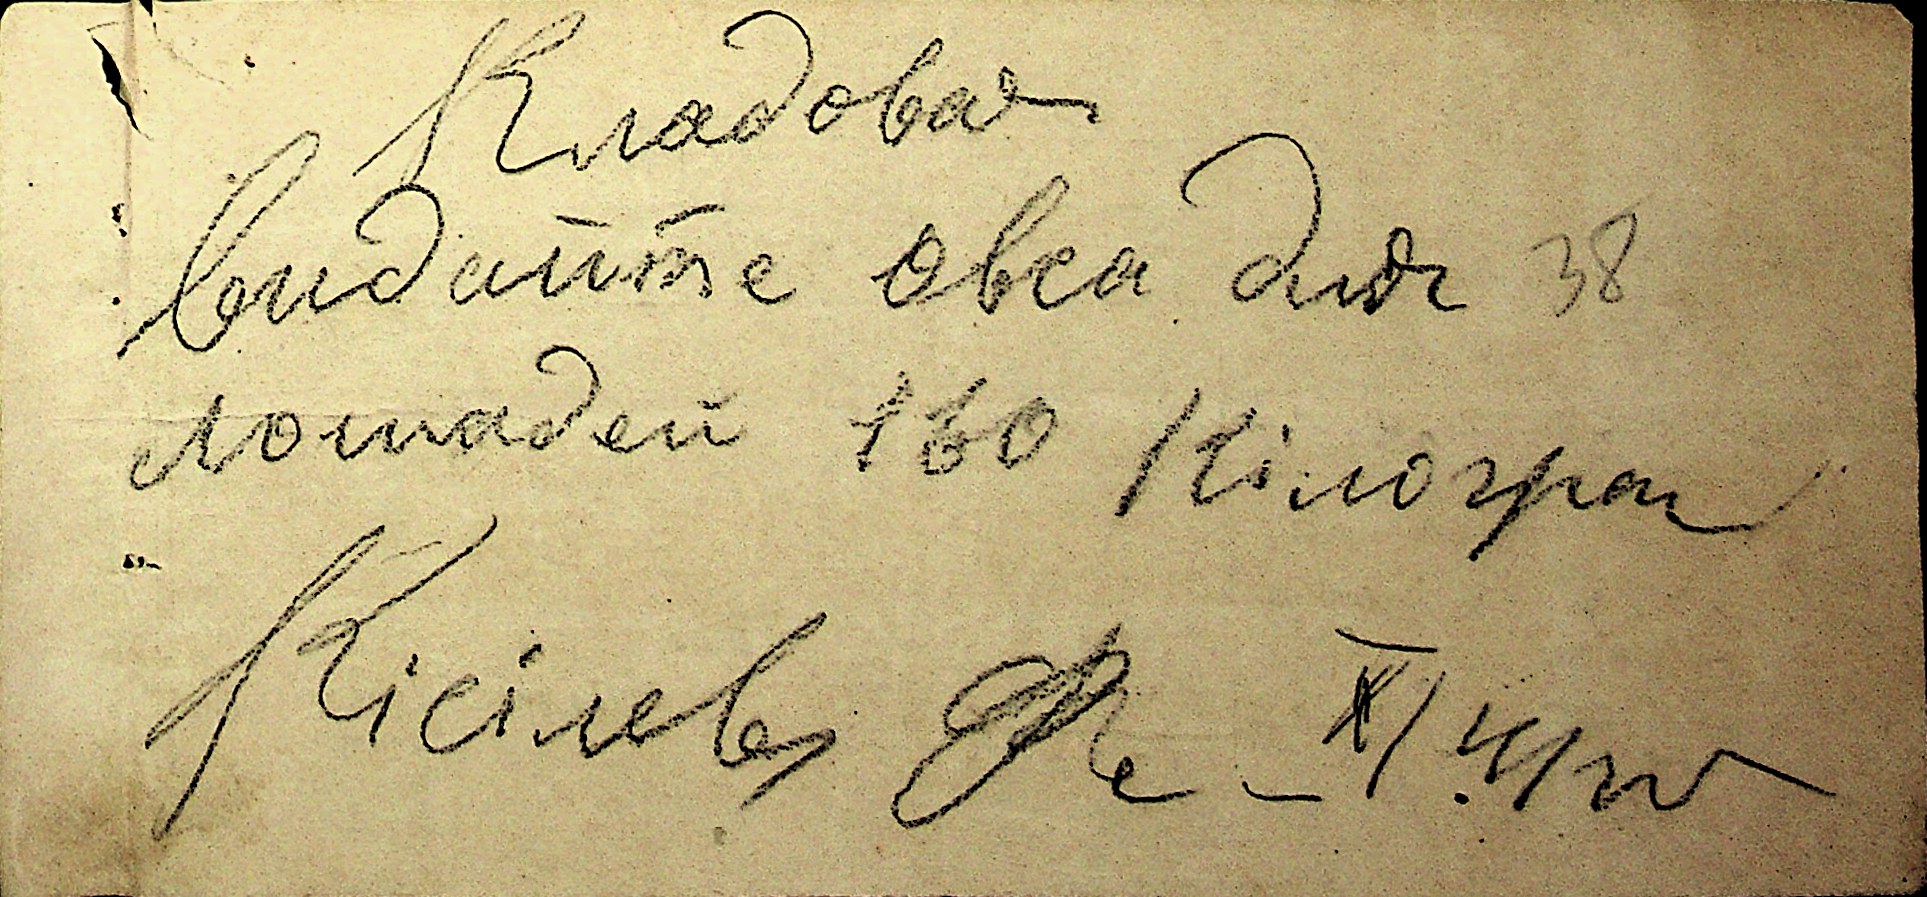 Кладовая
видайте овса для 38
лошадей 160 Кілограм
Кісілев